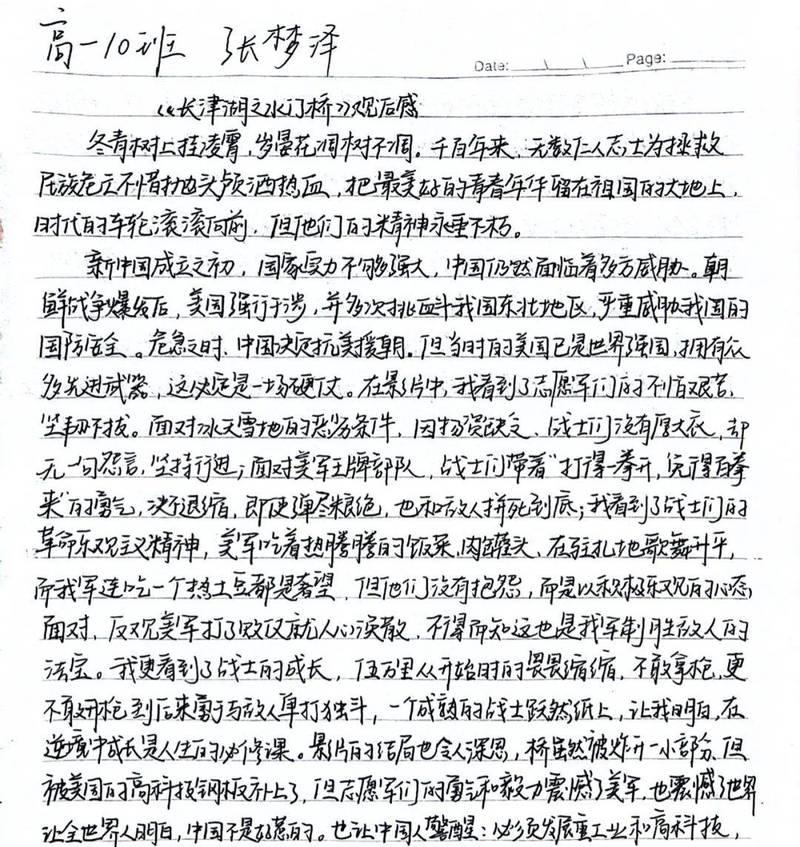 高一10班 张梦泽
Date: \ \ Page:
《长津湖之水门桥》观后感
冬青树上挂凌霄,岁晏花凋树不凋。千百年来,无数仁人志士为拯救
民族危亡不惜抛头颅洒热血,把最美好的青春年华留在祖国的大地上,
时代的车轮滚滚向前,但他们的精神永垂不朽。
新中国成立之初,国家实力不够强大,中国仍然面临着多方威胁。朝
鲜战争爆发后,美国强行干涉,并多次挑衅我国东北地区,严重威胁我国的
国防安全。危急之时、中国决定抗美援朝。但当时的美国已是世界强国,拥有众
多先进武器,这必定是一场硬仗。在影片中,我看到了志愿军们的不怕艰苦,
坚韧不拔。面对冰天雪地的恶劣条件,因物资缺乏、战士们没有厚大衣,却
无一句怨言,坚持行进;面对美军王牌部队,战士们带着“打得一拳开,免得百拳
来”的勇气,决不退缩,即使弹尽粮绝,也和敌人拼死到底;我看到了战士们的
革命乐观主义精神,美军吃着热腾腾的饭菜,肉罐头、在驻扎地歌舞升平,
而我军连吃一个热土豆都是奢望,但他们没有抱怨,而是以积极乐观的心态
面对,反观美军打了败仗就人心涣散,不得而知这也是我军制胜敌人的
法宝。我更看到了战士的成长,伍万里从开始时的畏畏缩缩,不敢拿枪,更
不敢开枪到后来勇于与敌人单打独斗,一个成熟的战士跃然纸上,让我明白,在
逆境中成长是人生的必修课。影片的结局也令人深思,桥虽然被炸开一小部分,但
被美国的高科技钢板补上了,但志愿军们的勇气和毅力震憾了美军,也震憾了世界
让全世界人明白,中国不是好惹的。也让中国人警醒:必须发展重工业和高科技,